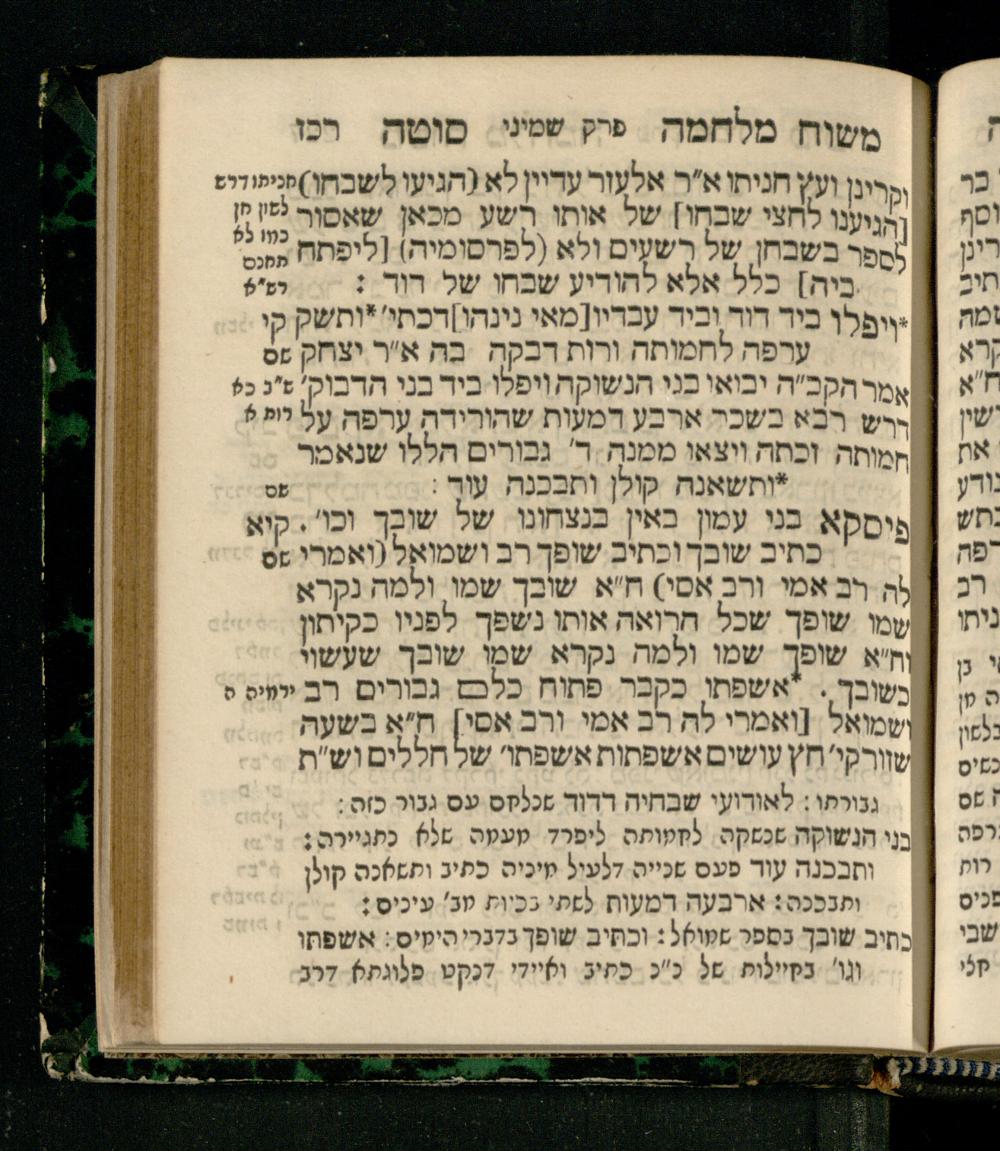 משוח מלחמה פרק שמיני סוטה רכז
וקרינן ועץ חניתו א״ר אלעזר עדיין לא (הגיעו לשבחו)
[הגיענו לחצי שבחו] של אותו רשע מכאן שאסור
לספר בשבחן של רשעים ולא (לפרסומיה) [ליפתח
ביה] כלל אלא להודיע שבחו של דוד :
*ויפלו ביד דוד וביד עבדיו[מאי נינהו]דכתי׳ *ותשק קי
ערפה לחמותה ורות דבקה בה א״ר יצחק שם
אמר הקב״ה יבואו בני הנשוקה ויפלו ביד בני הדבוק׳ ש״ב כא
דרש רבא בשכר ארבע דמעות שהורידה ערפה על רות א
חמותה זכתה ויצאו ממנה ד׳ גבורים הללו שנאמר
*ותשאנה קולן ותבכנה עוד : שם
פיסקא בני עמון באין בנצחונו של שובך וכו׳. קיא
כתיב שובך וכתיב שופך רב ושמואל (ואמרי שם
לה רב אמי ורב אסי) ח״א שובך שמו ולמה נקרא
שמו שופך שכל הרואה אותו נשפך לפניו כקיתון
וח״א שופך שמו ולמה נקרא שמו שובך שעשוי
כשובך. *אשפתו כקבר פתוח כלם גבורים רב ירמיה ה
ושמואל [ואמרי לה רב אמי ורב אסי] ח״א בשעה
שזורקי׳ חץ עושים אשפתות אשפתו׳ של חללים וש״ת
גבורתו : לאודועי שבחיה דדוד שנלחם עם גבור כזה :
בני הנשוקה שנשקה לחמותה ליפרד מעמה שלא נתגיירה :
ותבכנה עוד פעם שנייה דלעיל מיניה כתיב ותשאנה קולן
ותבכנה : ארבעה דמעות לשתי בכיות מב׳ עינים :
כתיב שובך בספר שמואל : וכתיב שופך בדברי הימים : אשפתו
וגו׳ בחיילות של נ״נ כתיב ואיידי דנקט פלוגתא דרב
חניתו דרש
לשון חן
כמו לא
תחנם
רש״א